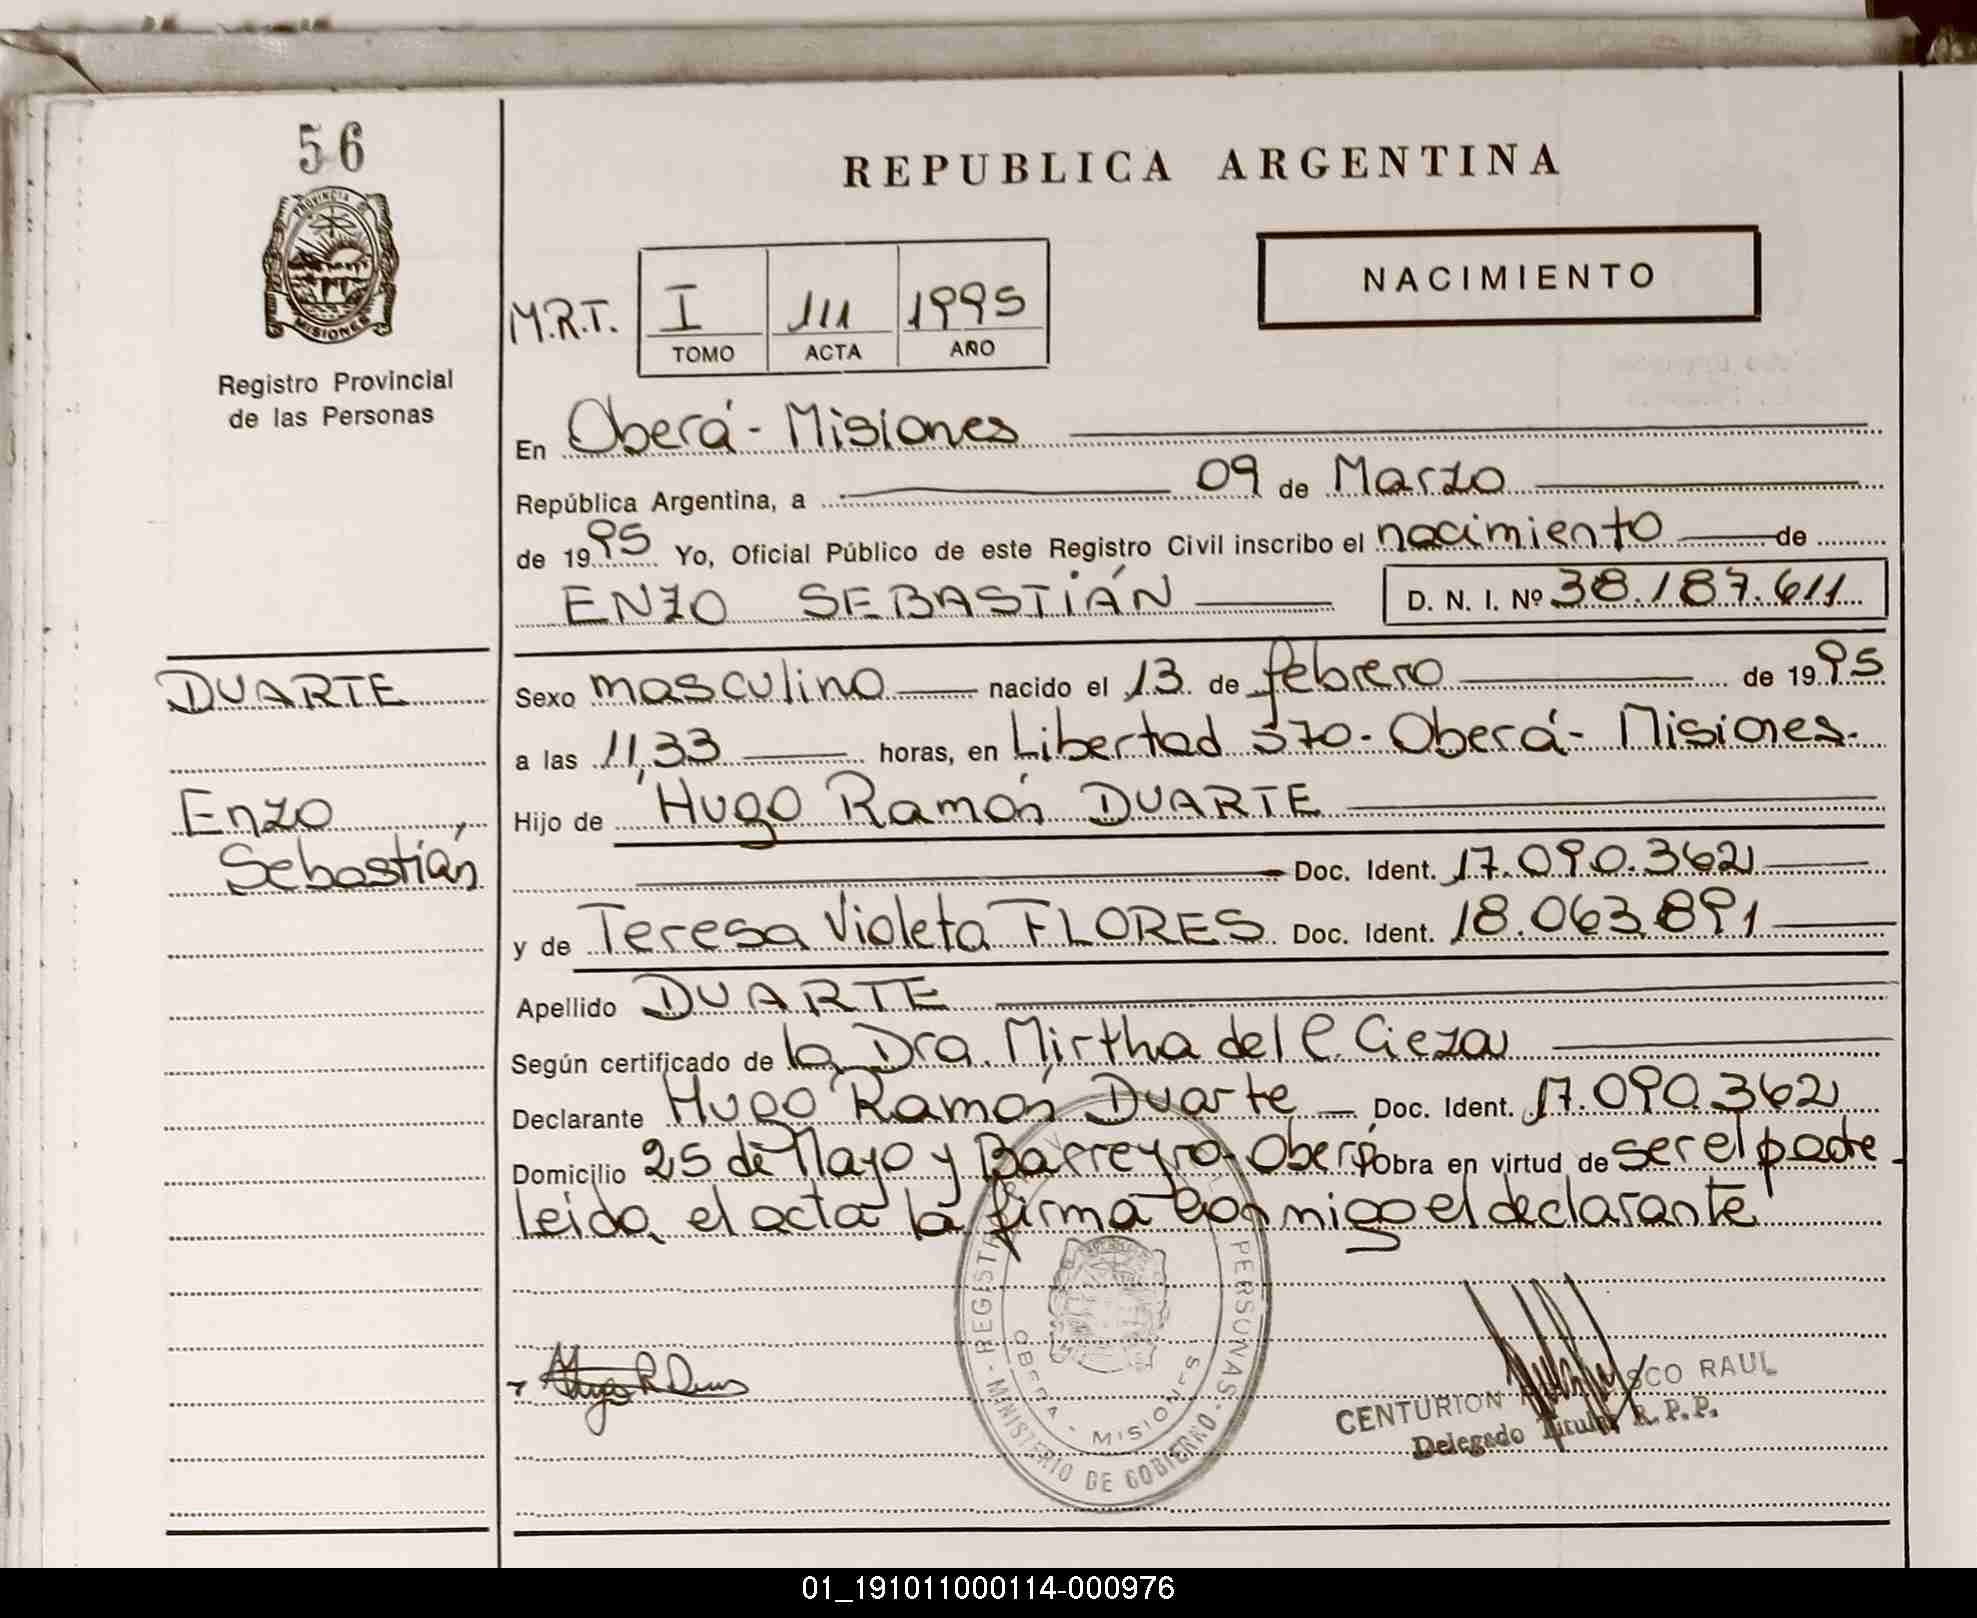 56
PROVINCIA DE
MISIONES
Registro Provincial
de las Personas
REPUBLICA ARGENTINA
NACIMIENTO
M.R.T. I 111 1995
TOMO ACTA AÑO
En Oberá - Misiones
República Argentina, a 09 de Marzo
de 1995 Yo, Oficial Público de este Registro Civil inscribo el nacimiento de
ENZO SEBASTIÁN D. N. I. Nº 38.187.611
DUARTE
Enzo
Sebastián
Sexo masculino nacido el 13 de febrero de 1995
a las 11,33 horas, en Libertad 370 - Oberá - Misiones.
Hijo de Hugo Ramón DUARTE
Doc. Ident. 17.090.362
y de Teresa Violeta FLORES Doc. Ident. 18.063.891
Apellido DUARTE
Según certificado de la Dra. Mirtha del C. Cieza
Declarante Hugo Ramón Duarte Doc. Ident. 17.090.362
Domicilio 25 de Mayo y Barreyro - Oberá Obra en virtud de ser el padre
leida el acta la firma conmigo el declarante
PERSONAS - MINISTERIO DE GOBIERNO
OBERA - MISIONES
CENTURION RAUL
Delegado Titular R.P.P.
01_191011000114-000976